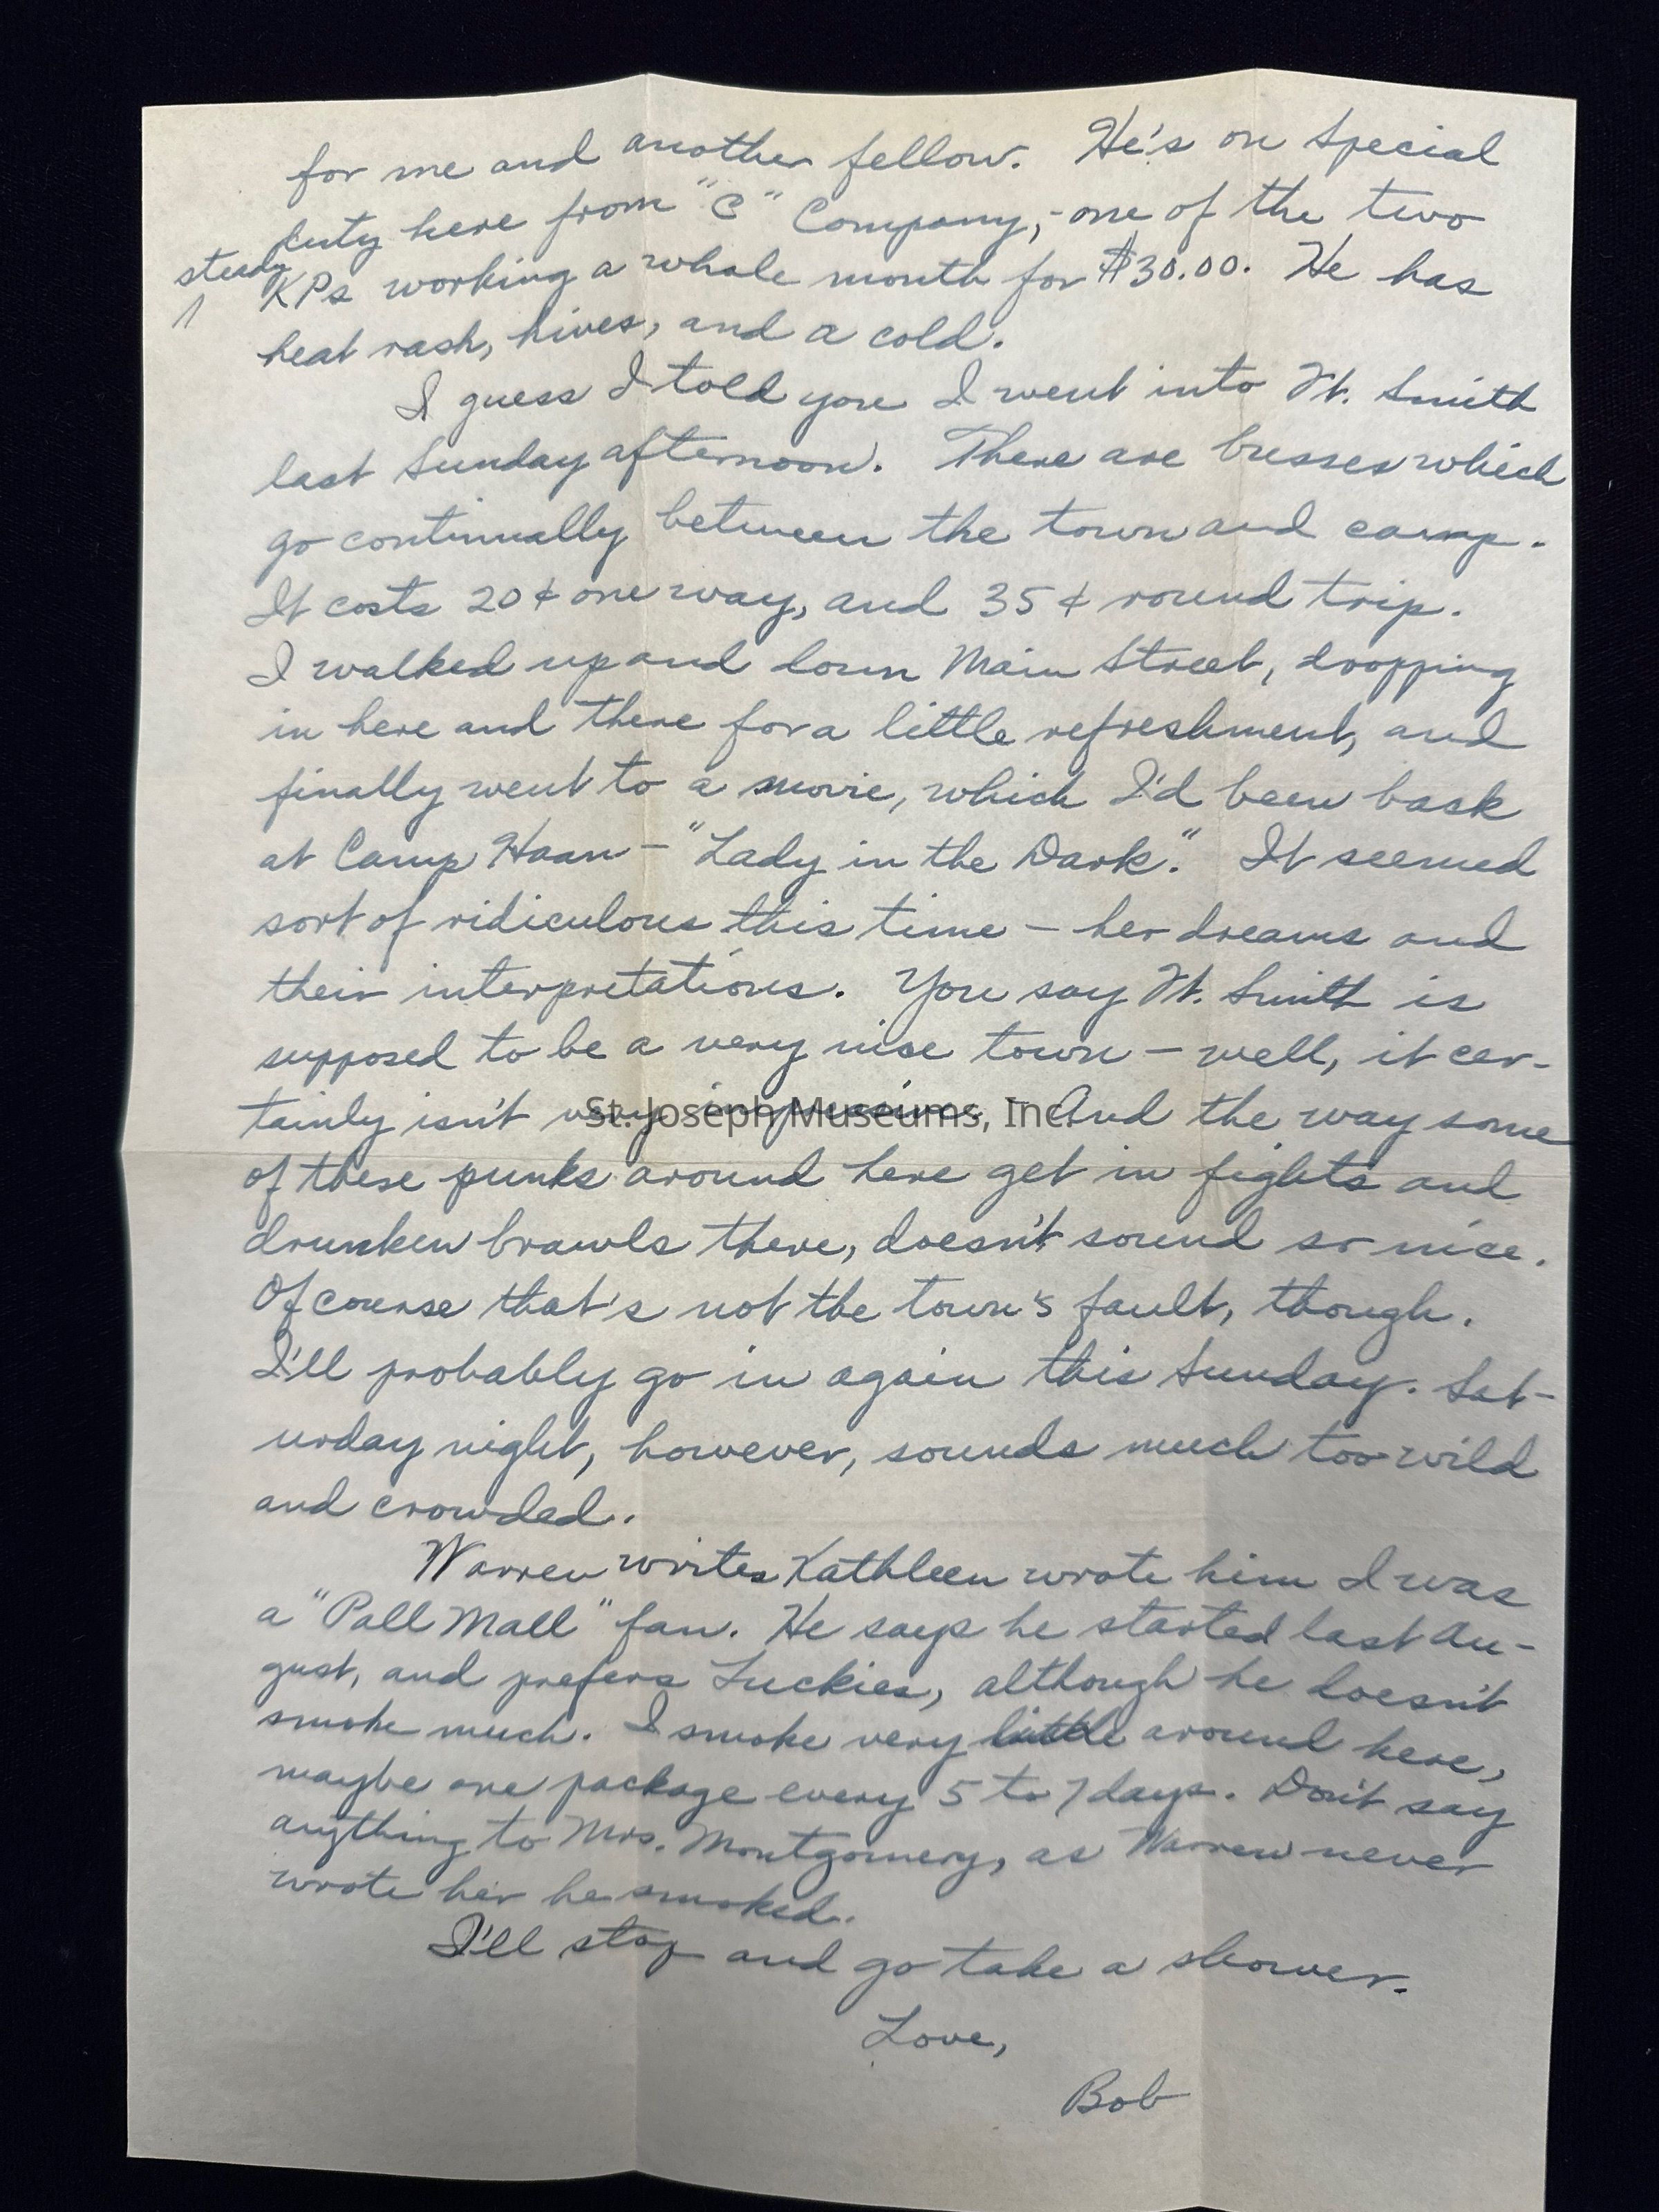 for me and another fellow. He's on special
duty here from "C" Company, - one of the two
steady
KPs working a whole month for $30.00. He has
heat rash, hives, and a cold.
I guess I told you I went into Ft. Smith
last Sunday afternoon. There are busses which
go continually between the town and camp.
It costs 20¢ one way, and 35¢ round trip.
I walked up and down Main Street, dropping
in here and there for a little refreshment, and
finally went to a movie, which I'd been back
at Camp Haan - "Lady in the Dark." It seemed
sort of ridiculous this time - her dreams and
their interpretations. You say Ft. Smith is
supposed to be a very nice town - well, it cer-
tainly isn't very impressive. And the way some
St. Joseph Museums, Inc.
of these punks around here get in fights and
drunken brawls there, doesn't sound so nice.
Of course that's not the town's fault, though.
I'll probably go in again this Sunday. Sat-
urday night, however, sounds much too wild
and crowded.
Warren writes Kathleen wrote him I was
a "Pall Mall" fan. He says he started last Au-
gust, and prefers Luckies, although he doesn't
smoke much. I smoke very little around here,
maybe one package every 5 to 7 days. Don't say
anything to Mrs. Montgomery, as Warren never
wrote her he smoked.
I'll stop and go take a shower.
Love,
Bob